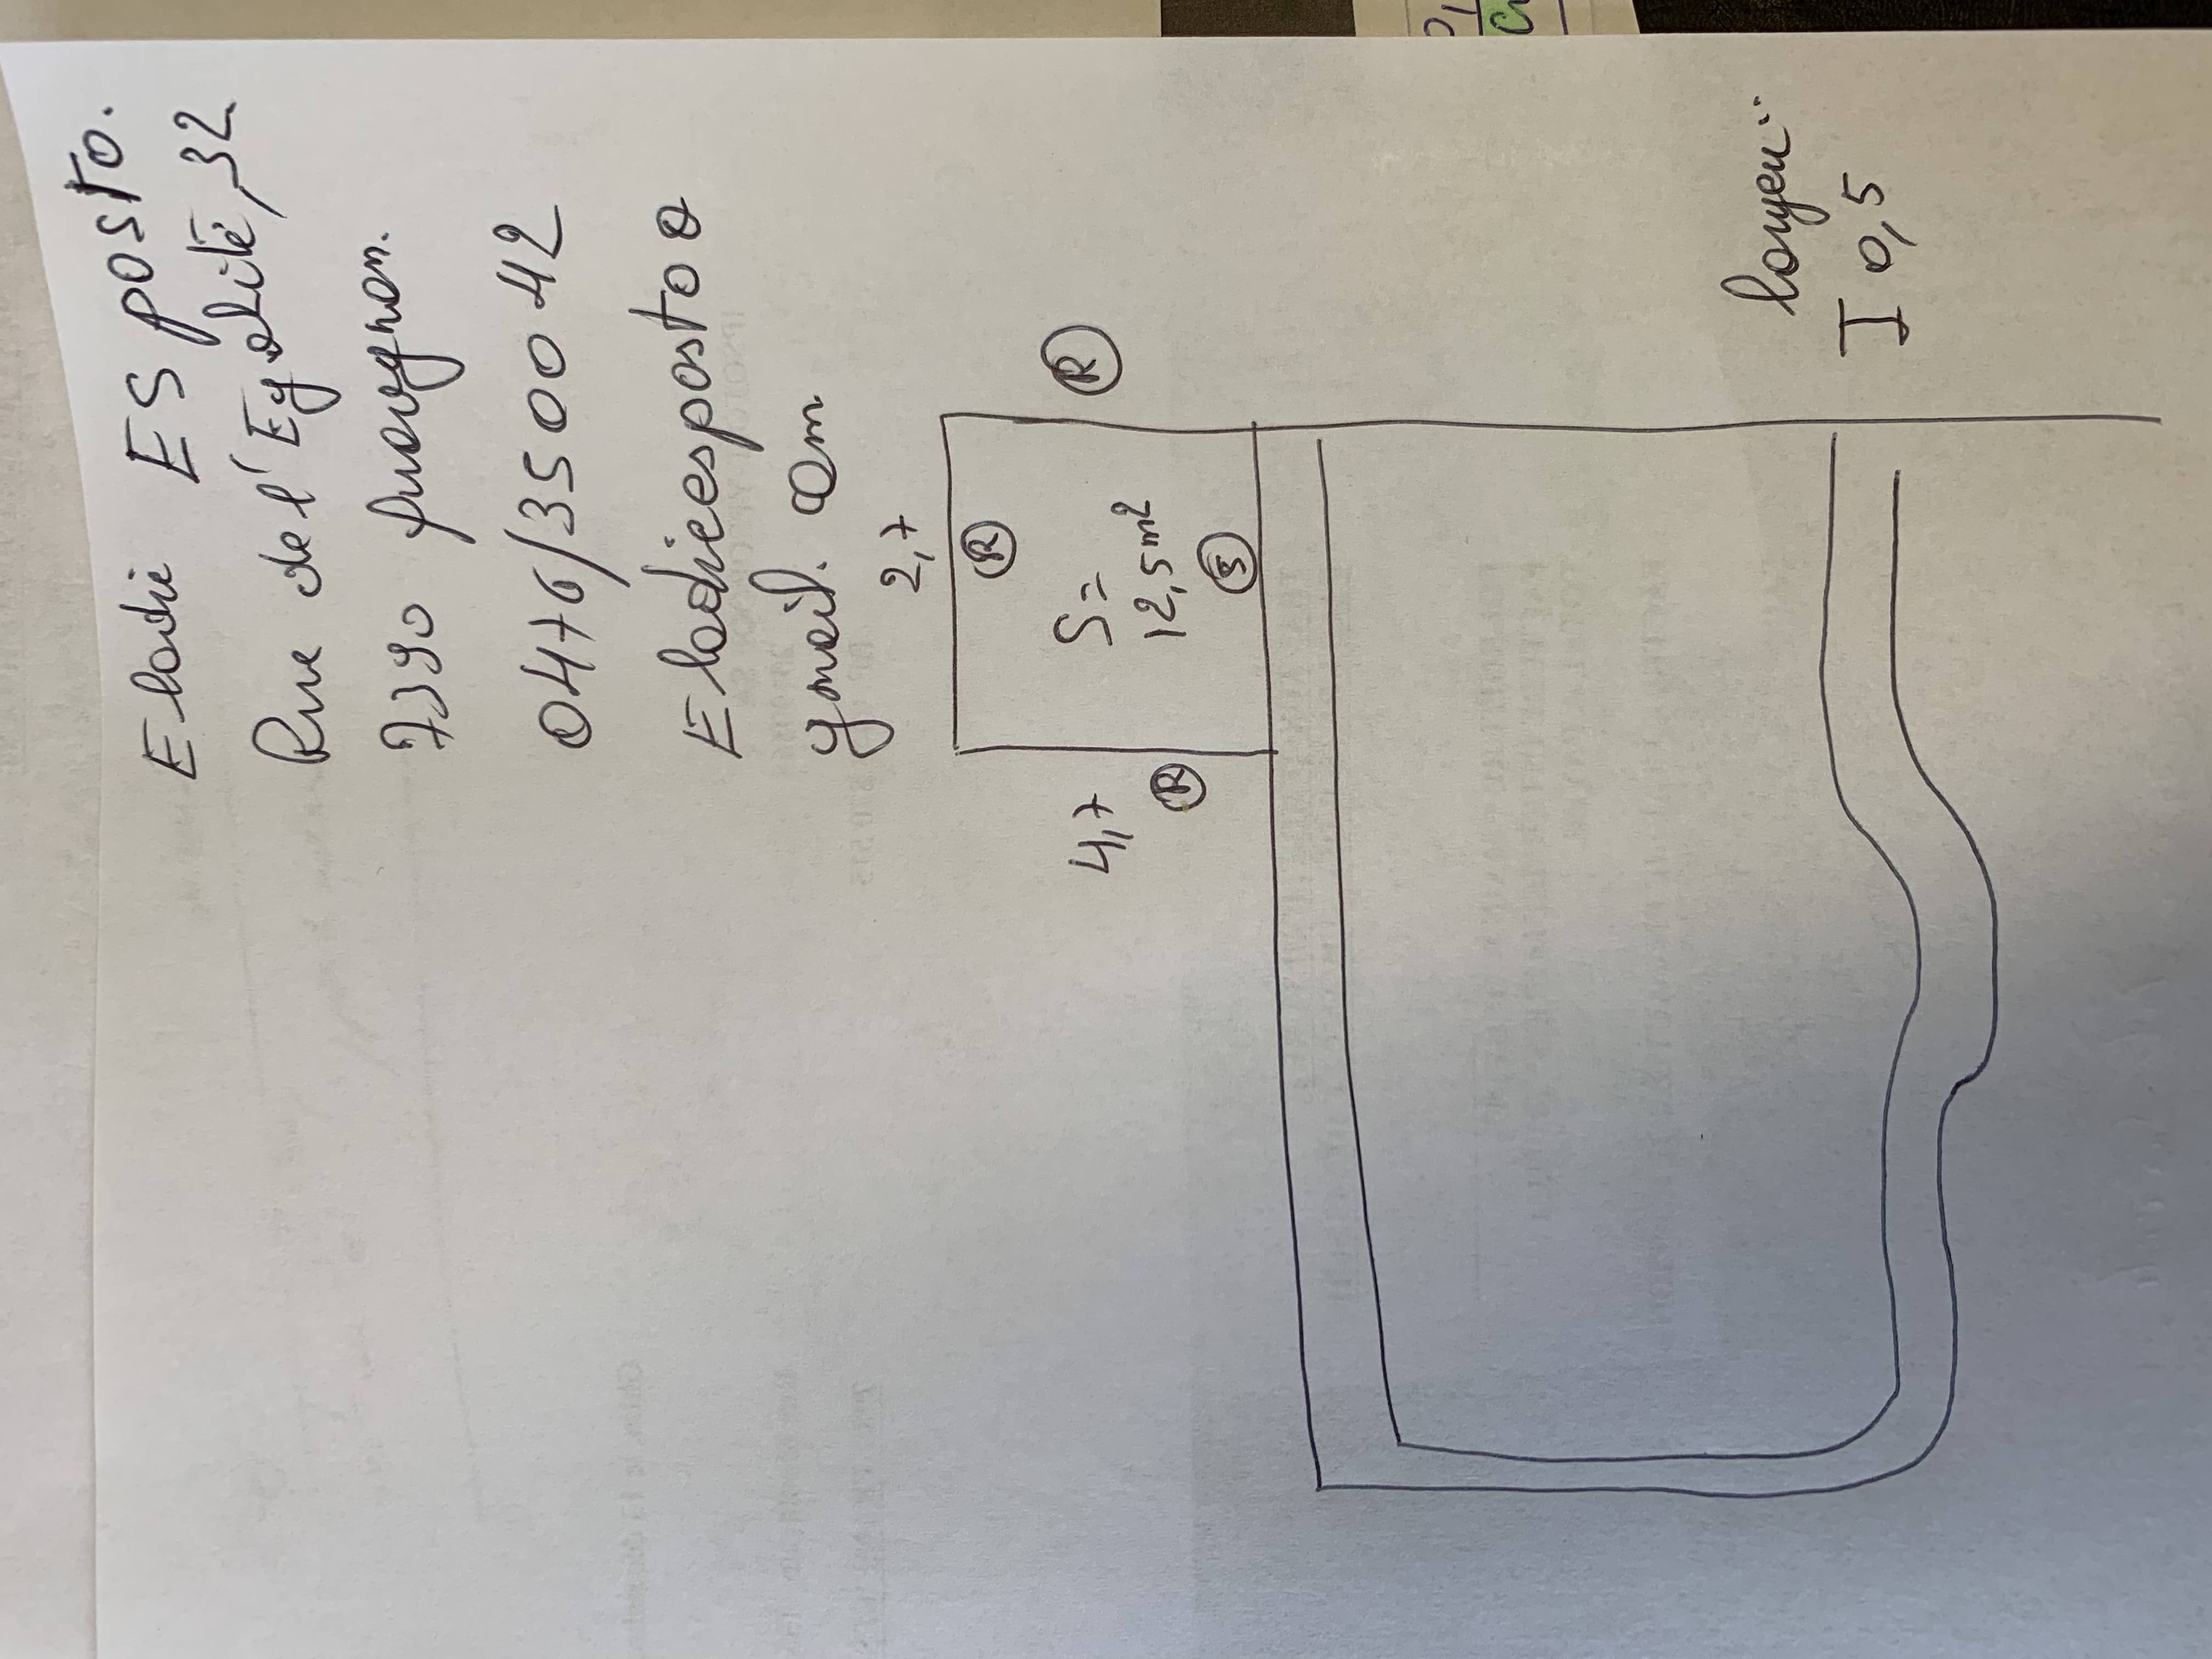 Elodie ESposto.
Rue de l'Egalité, 32
7390 quaregnon.
0476/350042
Elodieesposto@
gmail.com
2,7
R
R
S=
12,5 m²
S
4,7
R
I 0,5